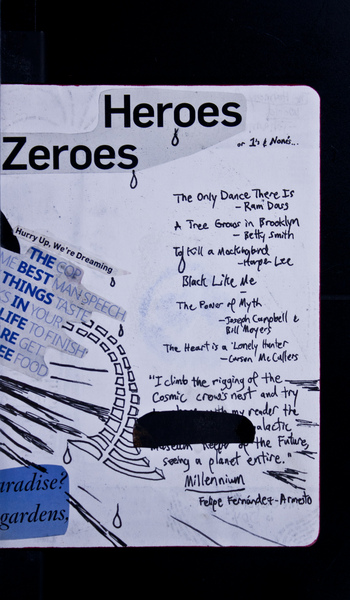 Heroes
Zeroes
or 1's & None's...
The Only Dance There Is
- Ram Dass
A Tree Grows in Brooklyn
- Betty Smith
To Kill a Mockingbird
- Harper Lee
Black Like Me
The Power of Myth
- Joseph Campbell &
Bill Moyers
The Heart is a Lonely Hunter
- Carson McCullers
"I climb the rigging of the
Cosmic crow's nest and try
my reader the
galactic
museum keeps of the Future,
seeing a planet entire."
Millennium
Felipe Fernández-Armesto
Hurry Up, We're Dreaming
THE COP
ME BEST MAN SPEECH
THINGS TASTE
IN YOUR
LIFE TO FINISH
ARE GET
FREE FOOD
aradise?
gardens,